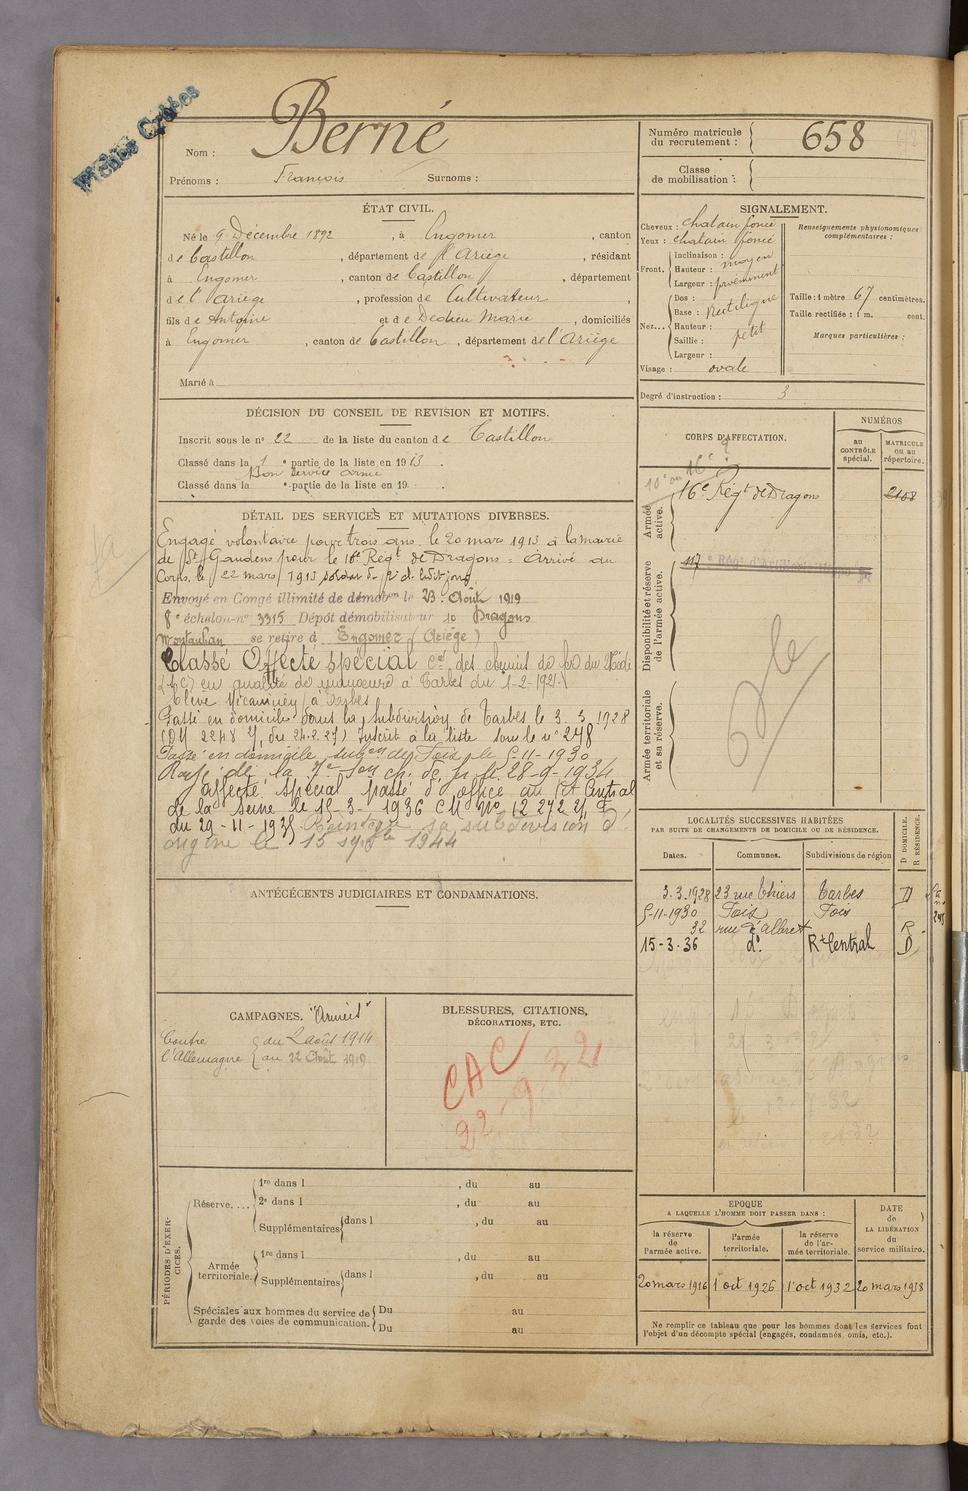 Fiches Créées
Nom : Berné
Prénoms : François Surnoms :
Numéro matricule du recrutement : 658
Classe de mobilisation :
ÉTAT CIVIL.
Né le 9 Décembre 1892, à Engomer, canton
de Castillon, département de l'Ariège, résidant
à Engomer, canton de Castillon, département
de l'Ariège, profession de Cultivateur,
fils de Antoine et de Dedieu Marie, domiciliés
à Engomer, canton de Castillon, département de l'Ariège
Marié à
SIGNALEMENT.
Cheveux : chatain foncé
Yeux : chatain foncé
Front. Inclinaison : moyen
Hauteur :
Largeur : proéminent
Nez... Dos :
Base : Rectiligne
Hauteur :
Saillie : petit
Largeur :
Visage : ovale
Renseignements physionomiques complémentaires :
Taille : 1 mètre 67 centimètres.
Taille rectifiée : 1 m. cent.
Marques particulières :
Degré d'instruction : 3
DÉCISION DU CONSEIL DE REVISION ET MOTIFS.
Inscrit sous le n° 22 de la liste du canton de Castillon
Classé dans la 1e partie de la liste en 1913.
Bon service armé
Classé dans la e partie de la liste en 19
CORPS D'AFFECTATION.
NUMÉROS
au CONTRÔLE spécial.
MATRICULE ou au répertoire.
Armée active.
16e Régt de Dragons 2108
Disponibilité et réserve de l'armée active.
117e Régt d'Artillerie
Armée territoriale et sa réserve.
DÉTAIL DES SERVICES ET MUTATIONS DIVERSES.
Engagé volontaire pour trois ans le 20 mars 1913 à la mairie
de St Gaudens pour le 16e Régt de Dragons = Arrivé au
Corps le 22 mars 1913 soldat de 2e cl. ledit jour
Envoyé en Congé illimité de démobon le 23 Août 1919
8e échelon n° 3315 Dépôt démobilisateur 10 Dragons
Montauban se retire à Engomer (Ariège)
Classé Affecté spécial Cie des chemins de fer du Midi
en qualité de manœuvre à Tarbes du 1-2-1921
Elève Mécanicien à Tarbes
Passé en domicile dans la subdivision de Tarbes le 3.3.1928
Inscrit à la liste sous le n° 248
Passé en domicile subon de Foix le 5-11-1930
28-9-1934
affecté spécial passé d'office au Rt Central
de la Seine le 15-3-1936 CM No 12272
du 29-11-1935 Réintègre sa subdivision d'
origine le 15 septbre 1944
ANTÉCÉDENTS JUDICIAIRES ET CONDAMNATIONS.
LOCALITÉS SUCCESSIVES HABITÉES
PAR SUITE DE CHANGEMENTS DE DOMICILE OU DE RÉSIDENCE.
Dates. Communes. Subdivisions de région
D DOMICILE. R RÉSIDENCE.
3.3.1928 23 rue Thiers Tarbes D
5-11-1930 Foix Foix
32 rue d'albret R
15-3-36 do Rt Central D
CAMPAGNES. "Armées"
Contre l'Allemagne du 2 août 1914
au 22 Août 1919
BLESSURES, CITATIONS,
DÉCORATIONS, ETC.
CAC
22-9-32
PÉRIODES D'EXERCICES.
Réserve.... 1re dans l , du au
2e dans l , du au
Supplémentaires dans l , du au
Armée territoriale. 1re dans l , du au
Supplémentaires dans l , du au
Spéciales aux hommes du service de garde des voies de communication. Du au
Du au
EPOQUE
A LAQUELLE L'HOMME DOIT PASSER DANS :
la réserve de l'armée active.
l'armée territoriale.
la réserve de l'armée territoriale.
DATE de LA LIBÉRATION du service militaire.
20 mars 1916 1 oct 1926 1 oct 1932 20 mars 1938
Ne remplir ce tableau que pour les hommes dont les services font
l'objet d'un décompte spécial (engagés, condamnés, omis, etc.).